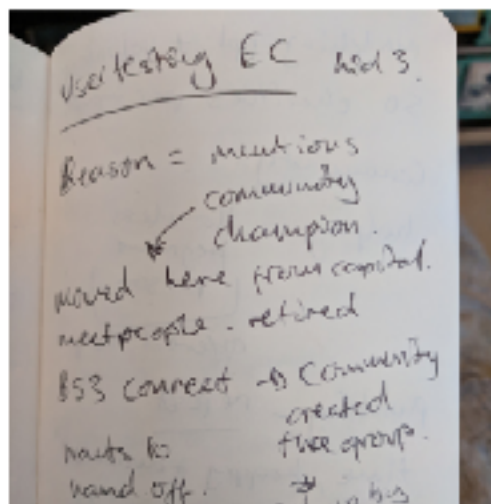 Usertesting EC
Reason = mentions
community
champion.
moved here from capital.
meet people - retired
BS3 connect → Community
created
the group.
wants to
hand off.